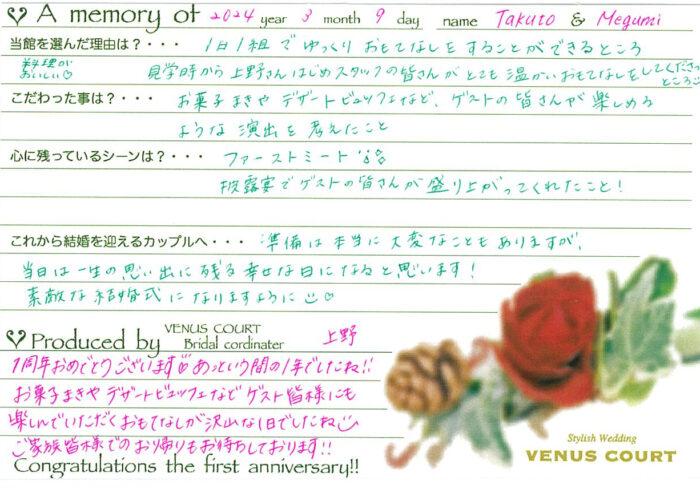 A memory of 2024 year 3 month 9 day name Takuto & Megumi
当館を選んだ理由は？・・・ 1日1組でゆっくりおもてなしをすることができるところ
料理がおいしい♡
見学時から上野さんはじめスタッフの皆さんがとても温かいおもてなしをしてくださったところ
こだわった事は？・・・ お菓子まきやデザートビュッフェなど、ゲストの皆さんが楽しめる
ような演出を考えたこと
心に残っているシーンは？・・・ ファーストミート
披露宴でゲストの皆さんが盛り上がってくれたこと！
これから結婚を迎えるカップルへ・・・ 準備は本当に大変なこともありますが、
当日は一生の思い出に残る幸せな日になると思います！
素敵な結婚式になりますように♡
Produced by VENUS COURT Bridal cordinater 上野
1周年おめでとうございます♡あっという間の1年でしたね!!
お菓子まきやデザートビュッフェなどゲスト皆様にも
楽しんでいただくおもてなしが沢山な1日でしたね
ご家族皆様でのお帰りもお待ちしております!!
Congratulations the first anniversary!!
Stylish Wedding
VENUS COURT